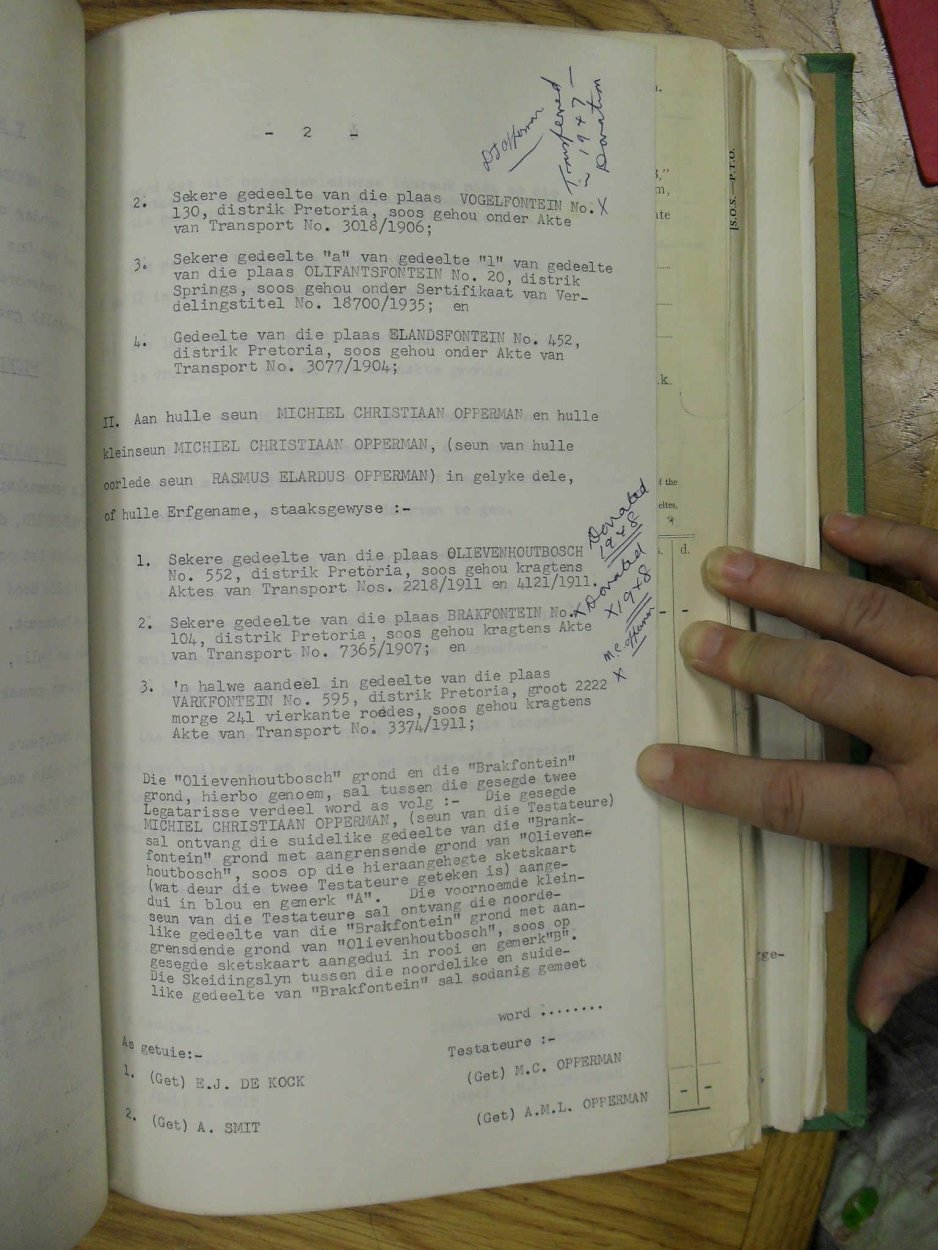 - 2 -
DJ Opperman
Transferred
in 1947 -
Donation
2. Sekere gedeelte van die plaas VOGELFONTEIN No. X
130, distrik Pretoria, soos gehou onder Akte
van Transport No. 3018/1906;
3. Sekere gedeelte "a" van gedeelte "1" van gedeelte
van die plaas OLIFANTSFONTEIN No. 20, distrik
Springs, soos gehou onder Sertifikaat van Ver-
delingstitel No. 18700/1935; en
4. Gedeelte van die plaas ELANDSFONTEIN No. 452,
distrik Pretoria, soos gehou onder Akte van
Transport No. 3077/1904;
II. Aan hulle seun MICHIEL CHRISTIAAN OPPERMAN en hulle
kleinseun MICHIEL CHRISTIAAN OPPERMAN, (seun van hulle
oorlede seun RASMUS ELARDUS OPPERMAN) in gelyke dele,
of hulle Erfgename, staaksgewyse :-
1. Sekere gedeelte van die plaas OLIEVENHOUTBOSCH
No. 552, distrik Pretoria, soos gehou kragtens
Aktes van Transport Nos. 2218/1911 en 4121/1911.
Donated
1948
2. Sekere gedeelte van die plaas BRAKFONTEIN No. X
104, distrik Pretoria, soos gehou kragtens Akte
van Transport No. 7365/1907; en
Donated
X 1948
M.C. Opperman
X
3. 'n halwe aandeel in gedeelte van die plaas
VARKFONTEIN No. 595, distrik Pretoria, groot 2222
morge 241 vierkante roedes, soos gehou kragtens
Akte van Transport No. 3374/1911;
Die "Olievenhoutbosch" grond en die "Brakfontein"
grond, hierbo genoem, sal tussen die gesegde twee
Legatarisse verdeel word as volg :- Die gesegde
MICHIEL CHRISTIAAN OPPERMAN, (seun van die Testateure)
sal ontvang die suidelike gedeelte van die "Brank-
fontein" grond met aangrensende grond van "Olieven-
houtbosch", soos op die hieraangehegte sketskaart
(wat deur die twee Testateure geteken is) aange-
dui in blou en gemerk "A". Die voornoemde klein-
seun van die Testateure sal ontvang die noorde-
like gedeelte van die "Brakfontein" grond met aan-
grensdende grond van "Olievenhoutbosch", soos op
gesegde sketskaart aangedui in rooi en gemerk"B".
Die Skeidingslyn tussen die noordelike en suide-
like gedeelte van "Brakfontein" sal sodanig gemeet
word ........
As getuie:-
Testateure :-
1. (Get) E.J. DE KOCK
(Get) M.C. OPPERMAN
2. (Get) A. SMIT
(Get) A.M.L. OPPERMAN
[S.O.S.—P.T.O.
f the
d.